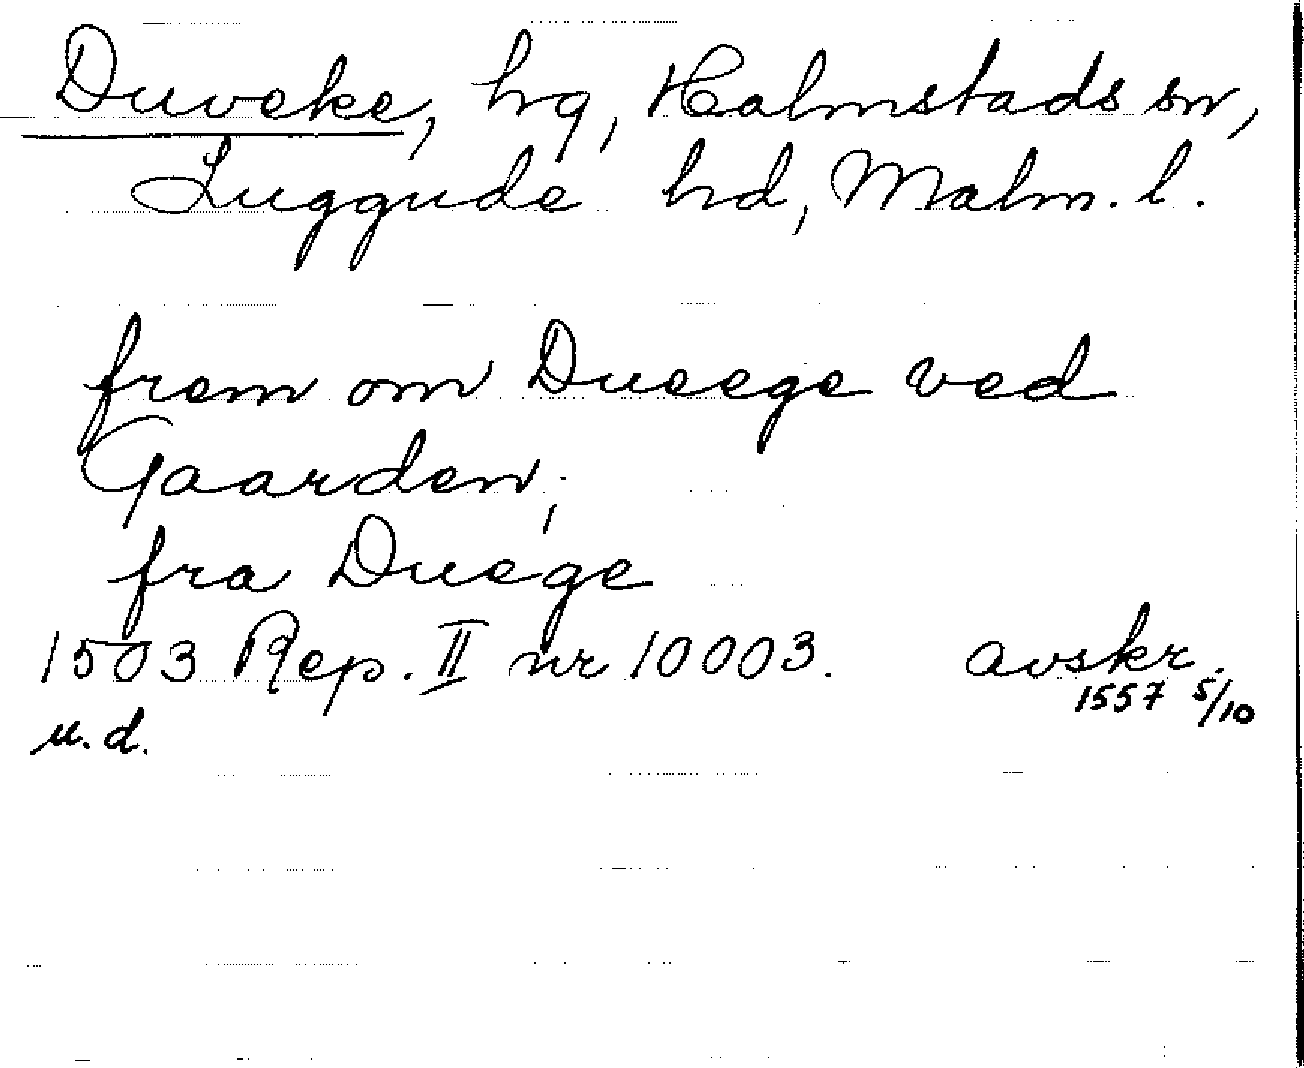 Duveke, hg, Halmstads sn,
Luggude hd, Malm. l.
frem om Dueege ved
Gaarden,
fra Duege
1503 Rep. II nr 10003. avskr.
u.d. 1557 5/10